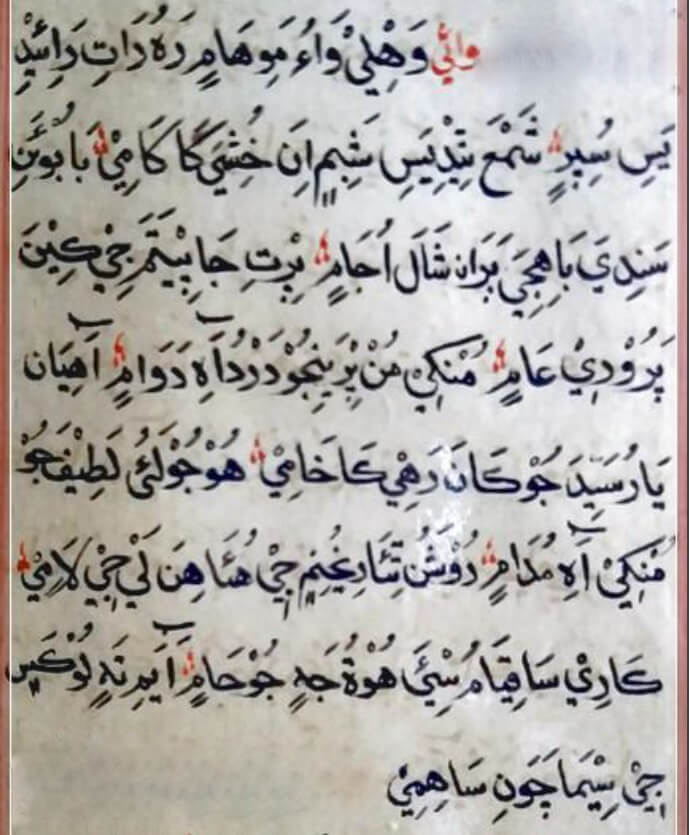 وائي وَهِلِيْ وَاءُ مَوِهَامِ رَهُ رَاتِ دَائِيدِ
يَسِ سُپِرِ شَمْعَ تِيْدِيَسِ شَبِمِ اِنَ خُشِيَ كَا كَامِيْ بَابُوئَنِ
سَنِدِيَ بَاهِجِيَ پَرَان شَالَ اُجَامِ پِرْتِ جَا پِيْتَمَ جِيْ كِيْنَ
پَرُوْدِيْ عَامِ مُنكِيْ مُنْ پِرِيَنِجُوْ دَرْدُ آهِ دَوَامِ آهِيَان
يَارُ سَيِّدَ جُوْ كَانَ رَهِيْ كَا خَامِيْ هُوْ جُوْ لَئُ لَطِيْفَ جُوْ
مُنكِيْ آهِ مُدَامِ رُوْشُنُ تِئَارِ غُنِمِ جِيْ هُئَا هِنَ لَيْ جِيْ لَامِيْ
كَارِيْ سَاقِيَامُ سْئِيَ هُوْءُ جَهِ جُوْ حَامِ آيَمِ تَهِ لُوْكَسِ
جِيْ سِيْمَا چَوِنِ سَاهِمِيْ